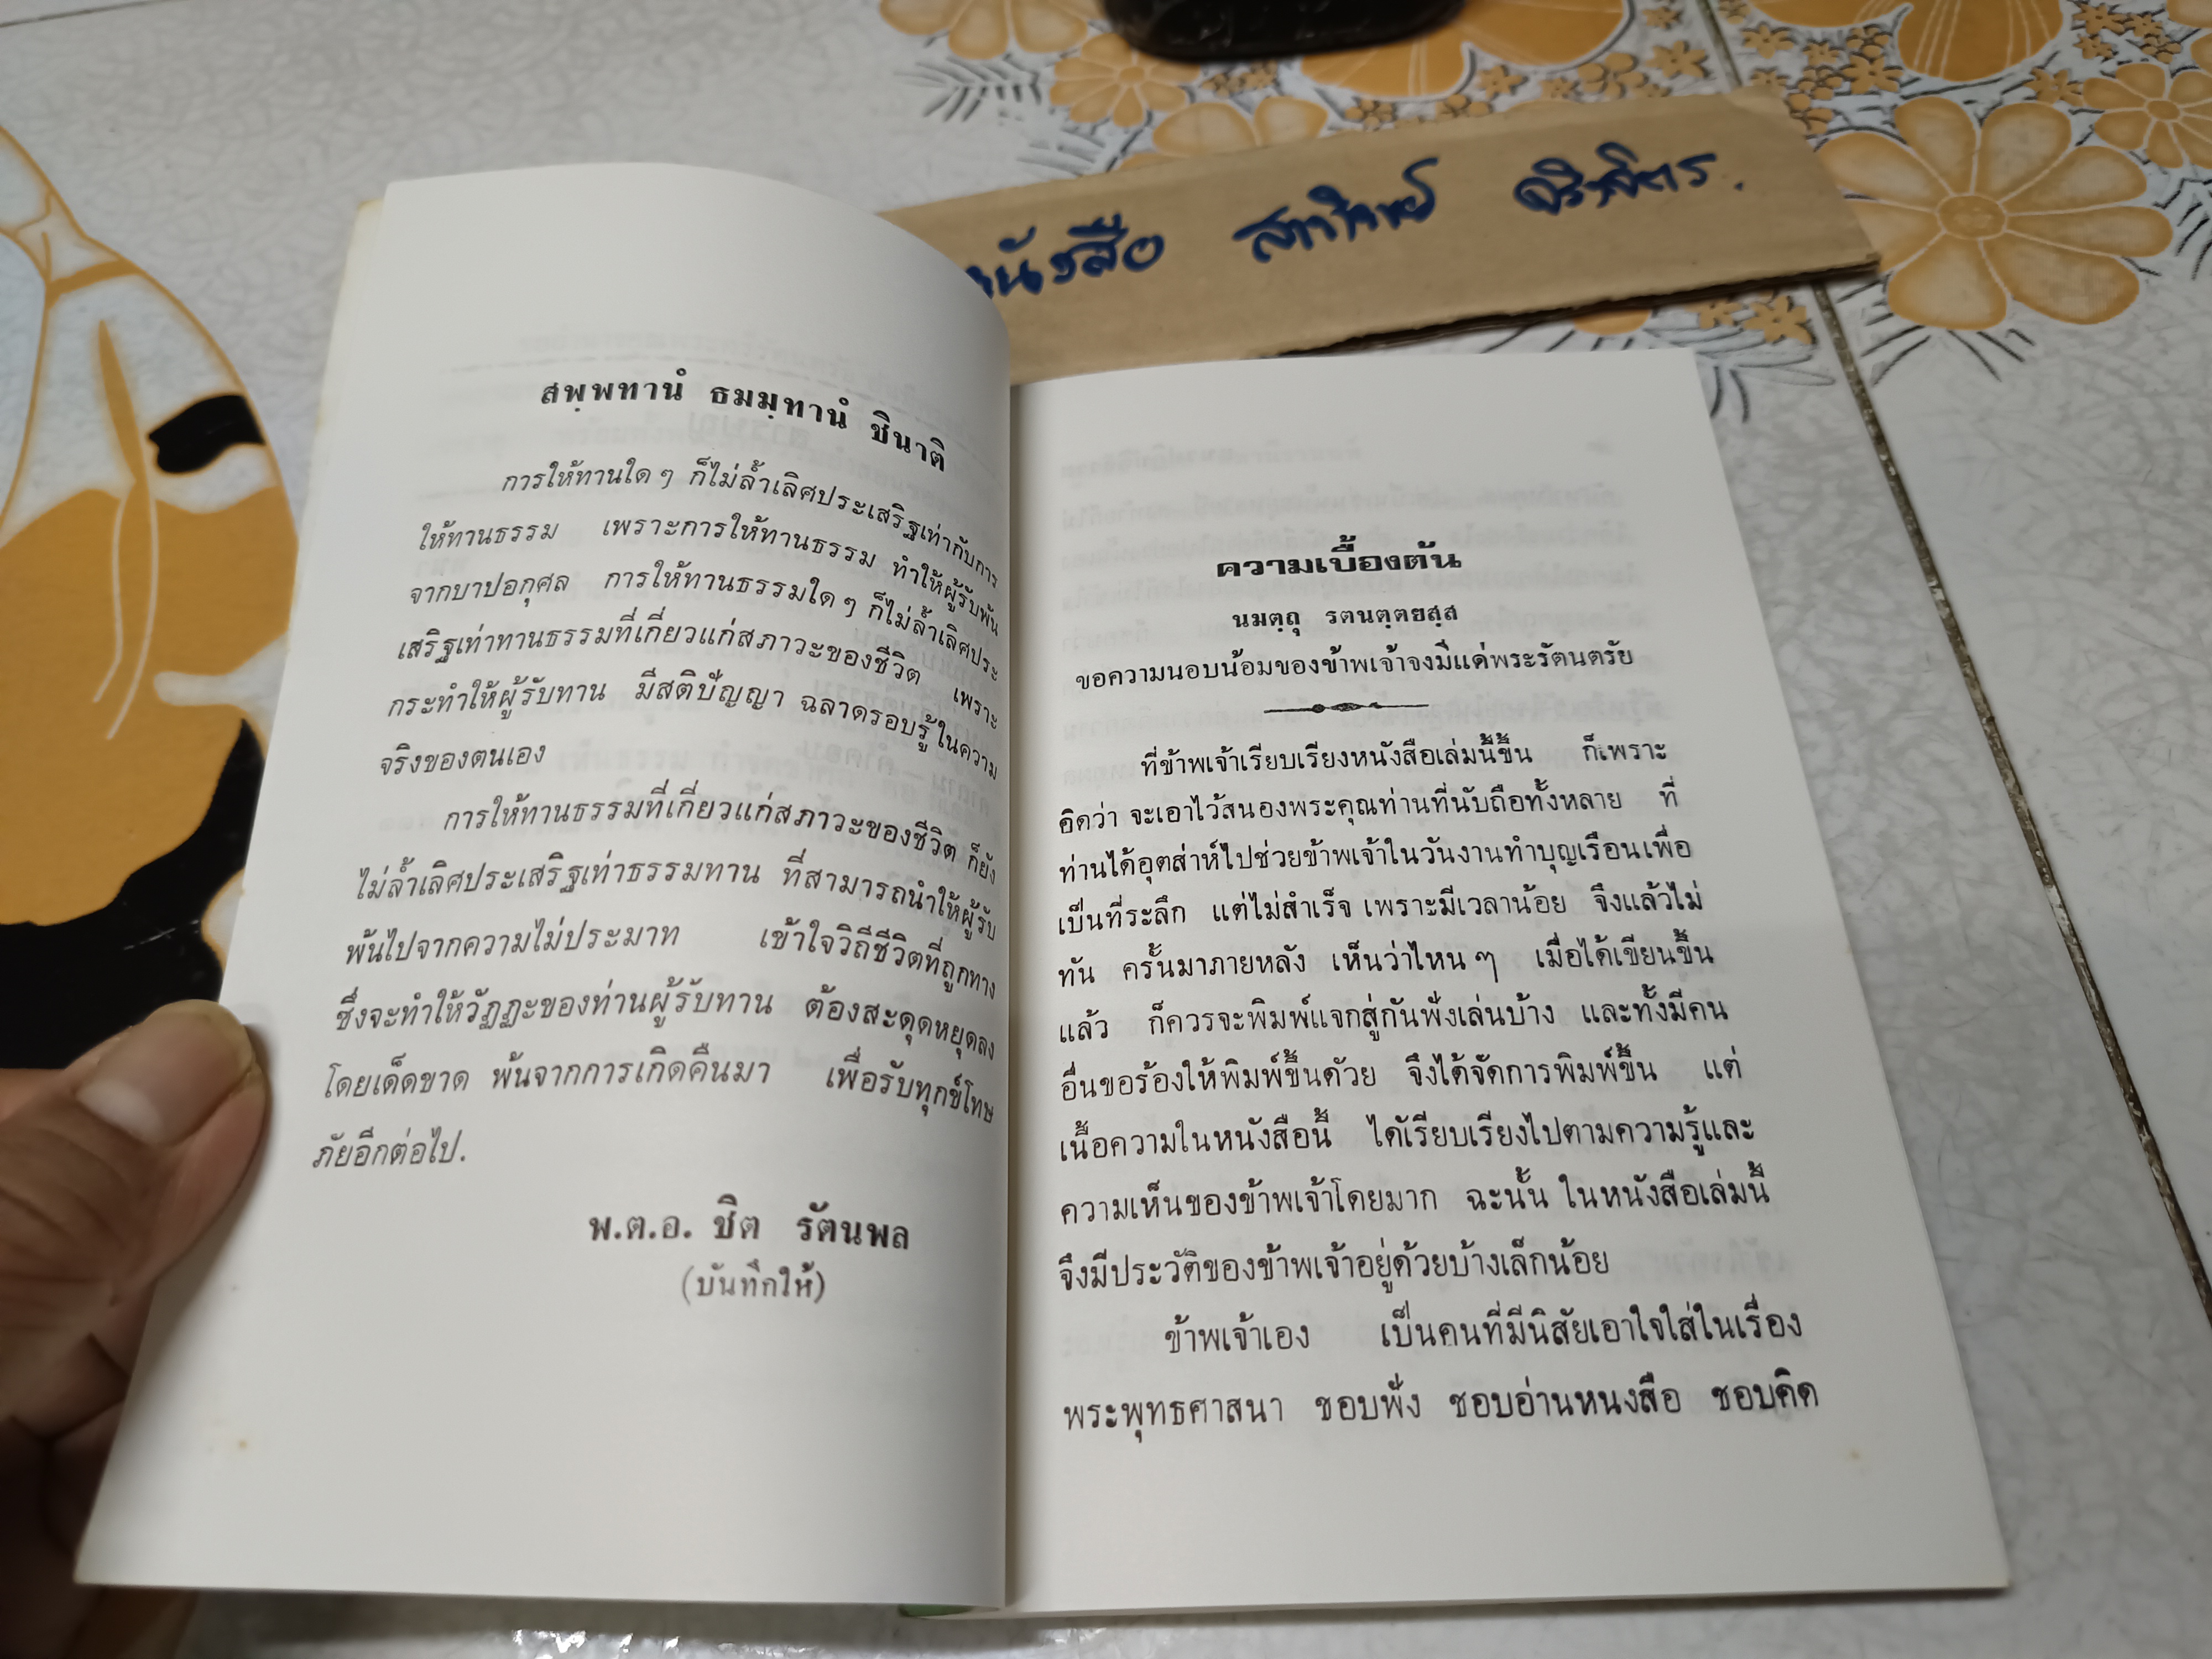 หนังสือ
สพฺพทานํ ธมฺมทานํ ชินาติ
การให้ทานใด ๆ ก็ไม่ล้ำเลิศประเสริฐเท่ากับการ
ให้ทานธรรม เพราะการให้ทานธรรม ทำให้ผู้รับพ้น
จากบาปอกุศล การให้ทานธรรมใด ๆ ก็ไม่ล้ำเลิศประ
เสริฐเท่าทานธรรมที่เกี่ยวแก่สภาวะของชีวิต เพราะ
กระทำให้ผู้รับทาน มีสติปัญญา ฉลาดรอบรู้ในความ
จริงของตนเอง
การให้ทานธรรมที่เกี่ยวแก่สภาวะของชีวิต ก็ยัง
ไม่ล้ำเลิศประเสริฐเท่าธรรมทาน ที่สามารถนำให้ผู้รับ
พ้นไปจากความไม่ประมาท เข้าใจวิถีชีวิตที่ถูกทาง
ซึ่งจะทำให้วัฏฏะของท่านผู้รับทาน ต้องสะดุดหยุดลง
โดยเด็ดขาด พ้นจากการเกิดคืนมา เพื่อรับทุกข์โทษ
ภัยอีกต่อไป.
พ.ต.อ. ชิต รัตนพล
(บันทึกให้)
ความเบื้องต้น
นมตฺถุ รตนตฺตยสฺส
ขอความนอบน้อมของข้าพเจ้าจงมีแด่พระรัตนตรัย
ที่ข้าพเจ้าเรียบเรียงหนังสือเล่มนี้ขึ้น ก็เพราะ
คิดว่า จะเอาไว้สนองพระคุณท่านที่นับถือทั้งหลาย ที่
ท่านได้อุตส่าห์ไปช่วยข้าพเจ้าในวันงานทำบุญเรือนเพื่อ
เป็นที่ระลึก แต่ไม่สำเร็จ เพราะมีเวลาน้อย จึงแล้วไม่
ทัน ครั้นมาภายหลัง เห็นว่าไหน ๆ เมื่อได้เขียนขึ้น
แล้ว ก็ควรจะพิมพ์แจกสู่กันฟังเล่นบ้าง และทั้งมีคน
อื่นขอร้องให้พิมพ์ขึ้นด้วย จึงได้จัดการพิมพ์ขึ้น แต่
เนื้อความในหนังสือนี้ ได้เรียบเรียงไปตามความรู้และ
ความเห็นของข้าพเจ้าโดยมาก ฉะนั้น ในหนังสือเล่มนี้
จึงมีประวัติของข้าพเจ้าอยู่ด้วยบ้างเล็กน้อย
ข้าพเจ้าเอง เป็นคนที่มีนิสัยเอาใจใส่ในเรื่อง
พระพุทธศาสนา ชอบฟัง ชอบอ่านหนงสือ ชอบคิด